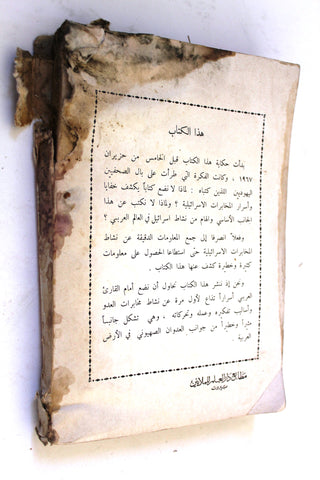 هذا الكتاب
بدأت حكاية هذا الكتاب قبل الخامس من حزيران
١٩٦٧ ، وكانت الفكرة التي طرأت على بال الصحفيين
اليهوديين اللذين كتباه : لماذا لا نضع كتاباً يكشف خفايا
وأسرار المخابرات الاسرائيلية ؟ ولماذا لا نكتب عن هذا
الجانب الأساسي والهام من نشاط اسرائيل في العالم العربي ؟
وفعلاً انصرفا إلى جمع المعلومات الدقيقة عن نشاط
المخابرات الاسرائيلية حتى استطاعا الحصول على معلومات
كثيرة وخطيرة كشف عنها هذا الكتاب .
ونحن إذ ننشر هذا الكتاب نحاول أن نضع أمام القارئ
العربي أسراراً تذاع لأول مرة عن نشاط مخابرات العدو
وأساليب تفكيره وعمله وتحركاته ، وهي تشكل جانباً
مثيراً وخطيراً من جوانب العدوان الصهيوني في الأرض
العربية
مطابع دار العلم للملايين
بيروت